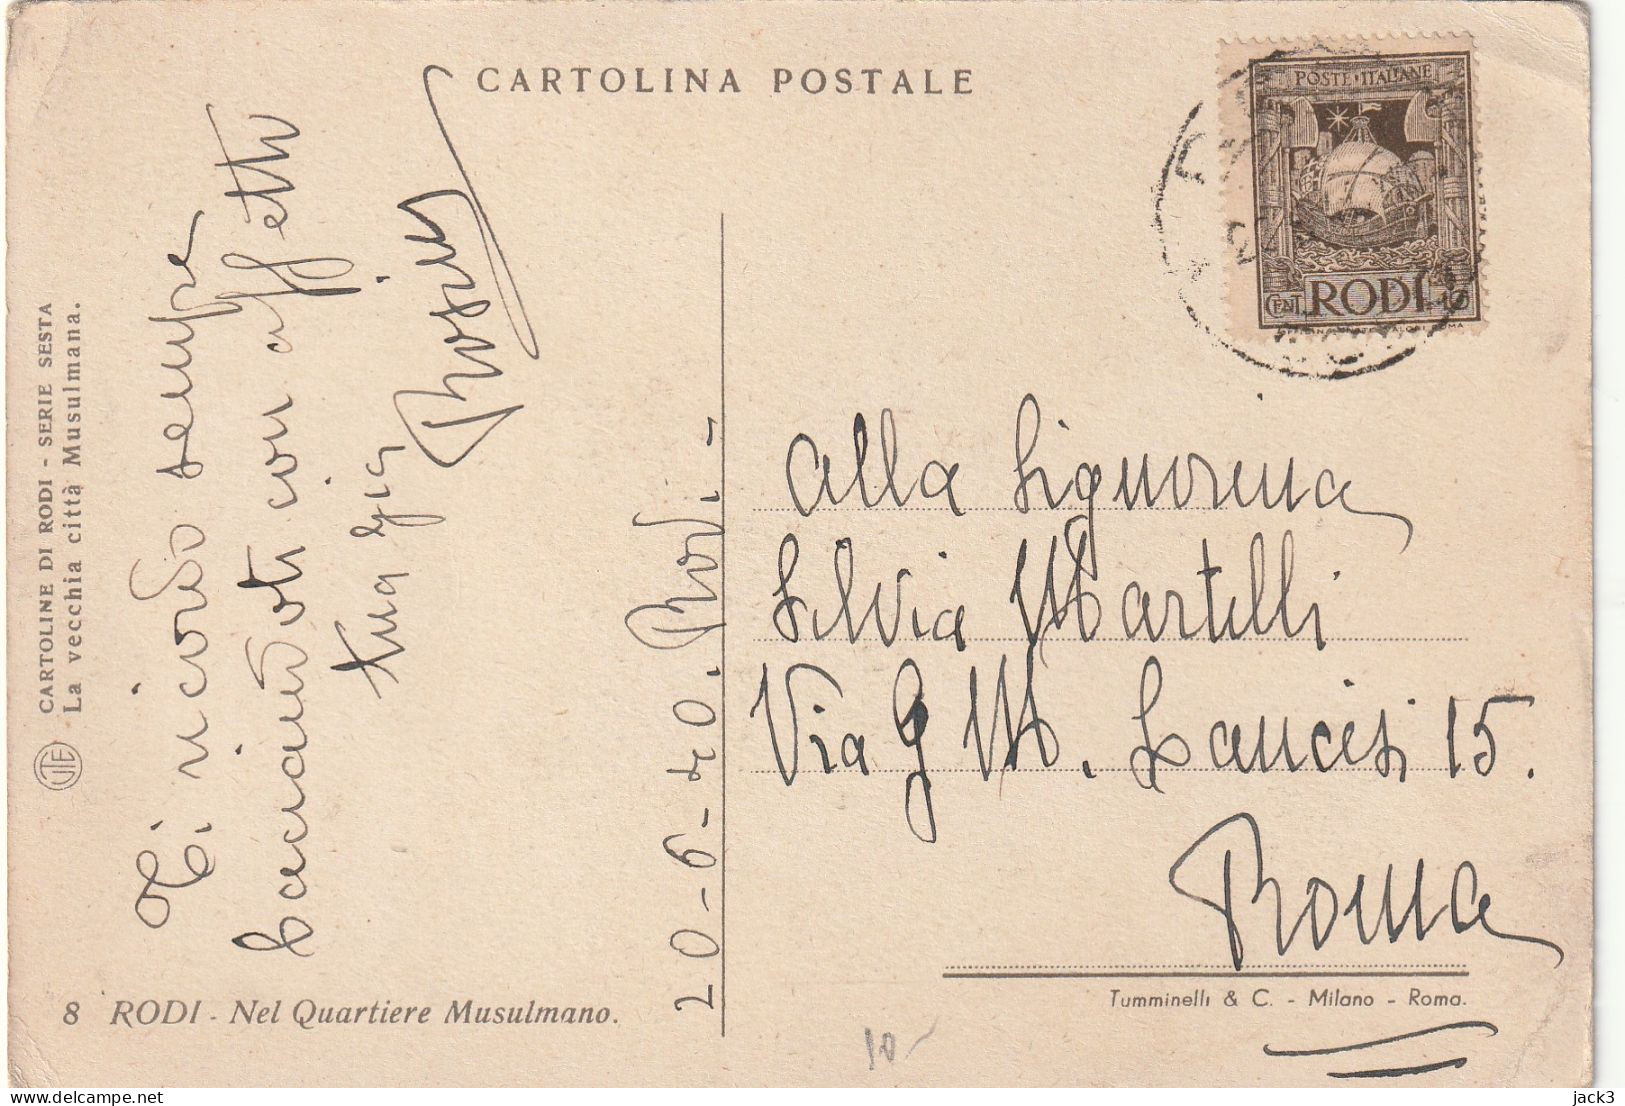 CARTOLINA POSTALE
POSTE·ITALIANE
CENT. RODI 10
CARTOLINE DI RODI - SERIE SESTA
La vecchia città Musulmana.
UTE
Ti ricordo sempre
baciandoti con affetto
tua
20-6-40. Rodi.-
alla Signorina
Silvia Martelli
Via G M. Lancisi 15.
Roma
8 RODI - Nel Quartiere Musulmano.
Tumminelli & C. - Milano - Roma.
10-
delcampe.net
jack3